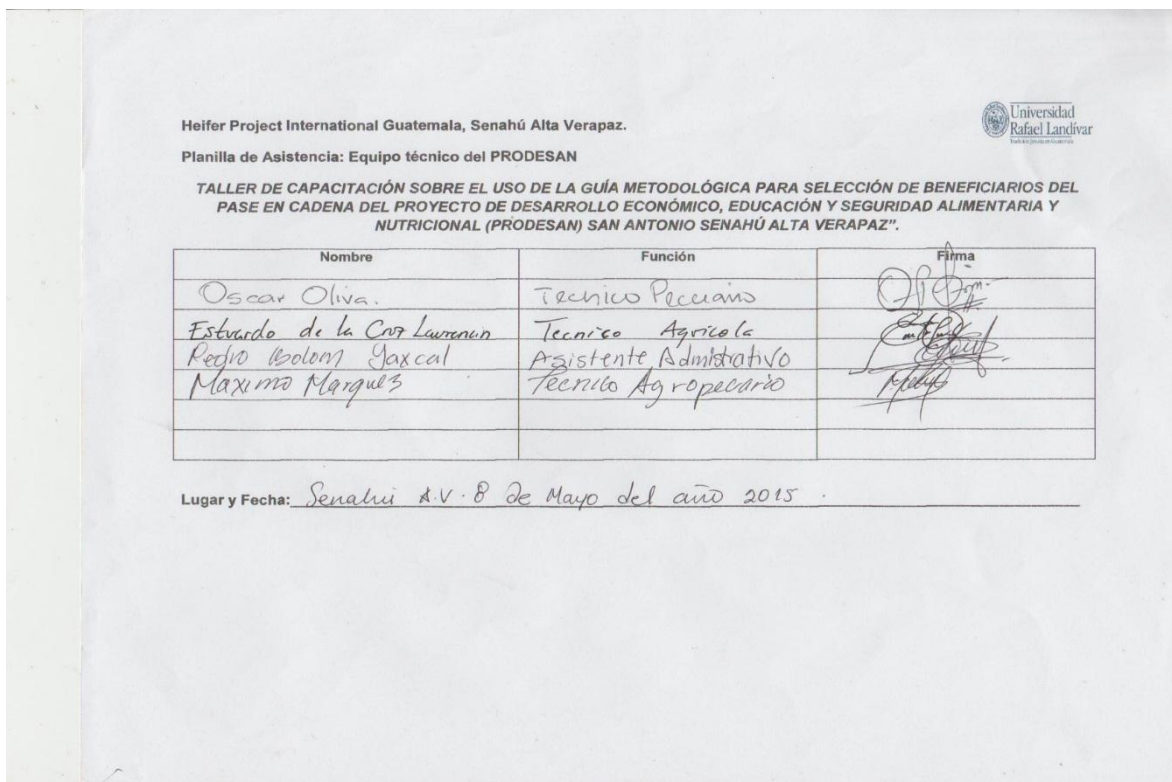 Universidad
Rafael Landívar
Tradición Jesuita en Guatemala
Heifer Project International Guatemala, Senahú Alta Verapaz.
Planilla de Asistencia: Equipo técnico del PRODESAN
TALLER DE CAPACITACIÓN SOBRE EL USO DE LA GUÍA METODOLÓGICA PARA SELECCIÓN DE BENEFICIARIOS DEL
PASE EN CADENA DEL PROYECTO DE DESARROLLO ECONÓMICO, EDUCACIÓN Y SEGURIDAD ALIMENTARIA Y
NUTRICIONAL (PRODESAN) SAN ANTONIO SENAHÚ ALTA VERAPAZ”.
Nombre Función Firma
Oscar Oliva. Tecnico Pecuario
Estuardo de la Cruz Tecnico Agricola
Pedro Yaxcal Asistente Admistrativo
Maximo Marquez Tecnico Agropecuario
Lugar y Fecha: Senahú A.V. 8 de Mayo del año 2015 .